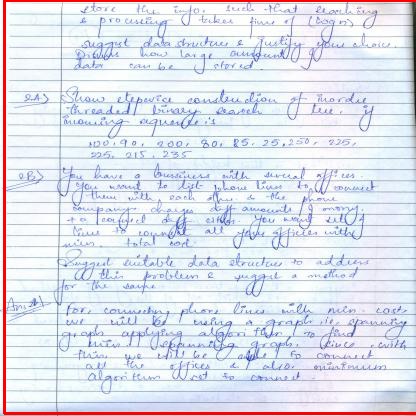 store the info. such that searching
& processing takes time of (log n)
suggest data structure & justify your choice.
Discuss how large amount of
data can be stored
Q.A) Show stepwise construction of inorder
threaded binary search tree, if
incoming sequence is
100, 90, 200, 80, 85, 25, 250, 225,
225, 215, 235
Q.B) You have a bussiness with several offices.
You want to list phone lines to connect
them with each other & the phone
company charges diff amounts of money
to connect diff cities. You want set of
lines to connect all your offices with
min. total cost.
Suggest suitable data structure to address
this problem & suggest a method
for the same.
For connecting phone lines with min. cost
we will be using a graph i.e. spanning
graph applying algorithm to find
min. spanning graph. Since with
this, we will be able to connect
all the offices & also minimum
algorithm cost to connect.